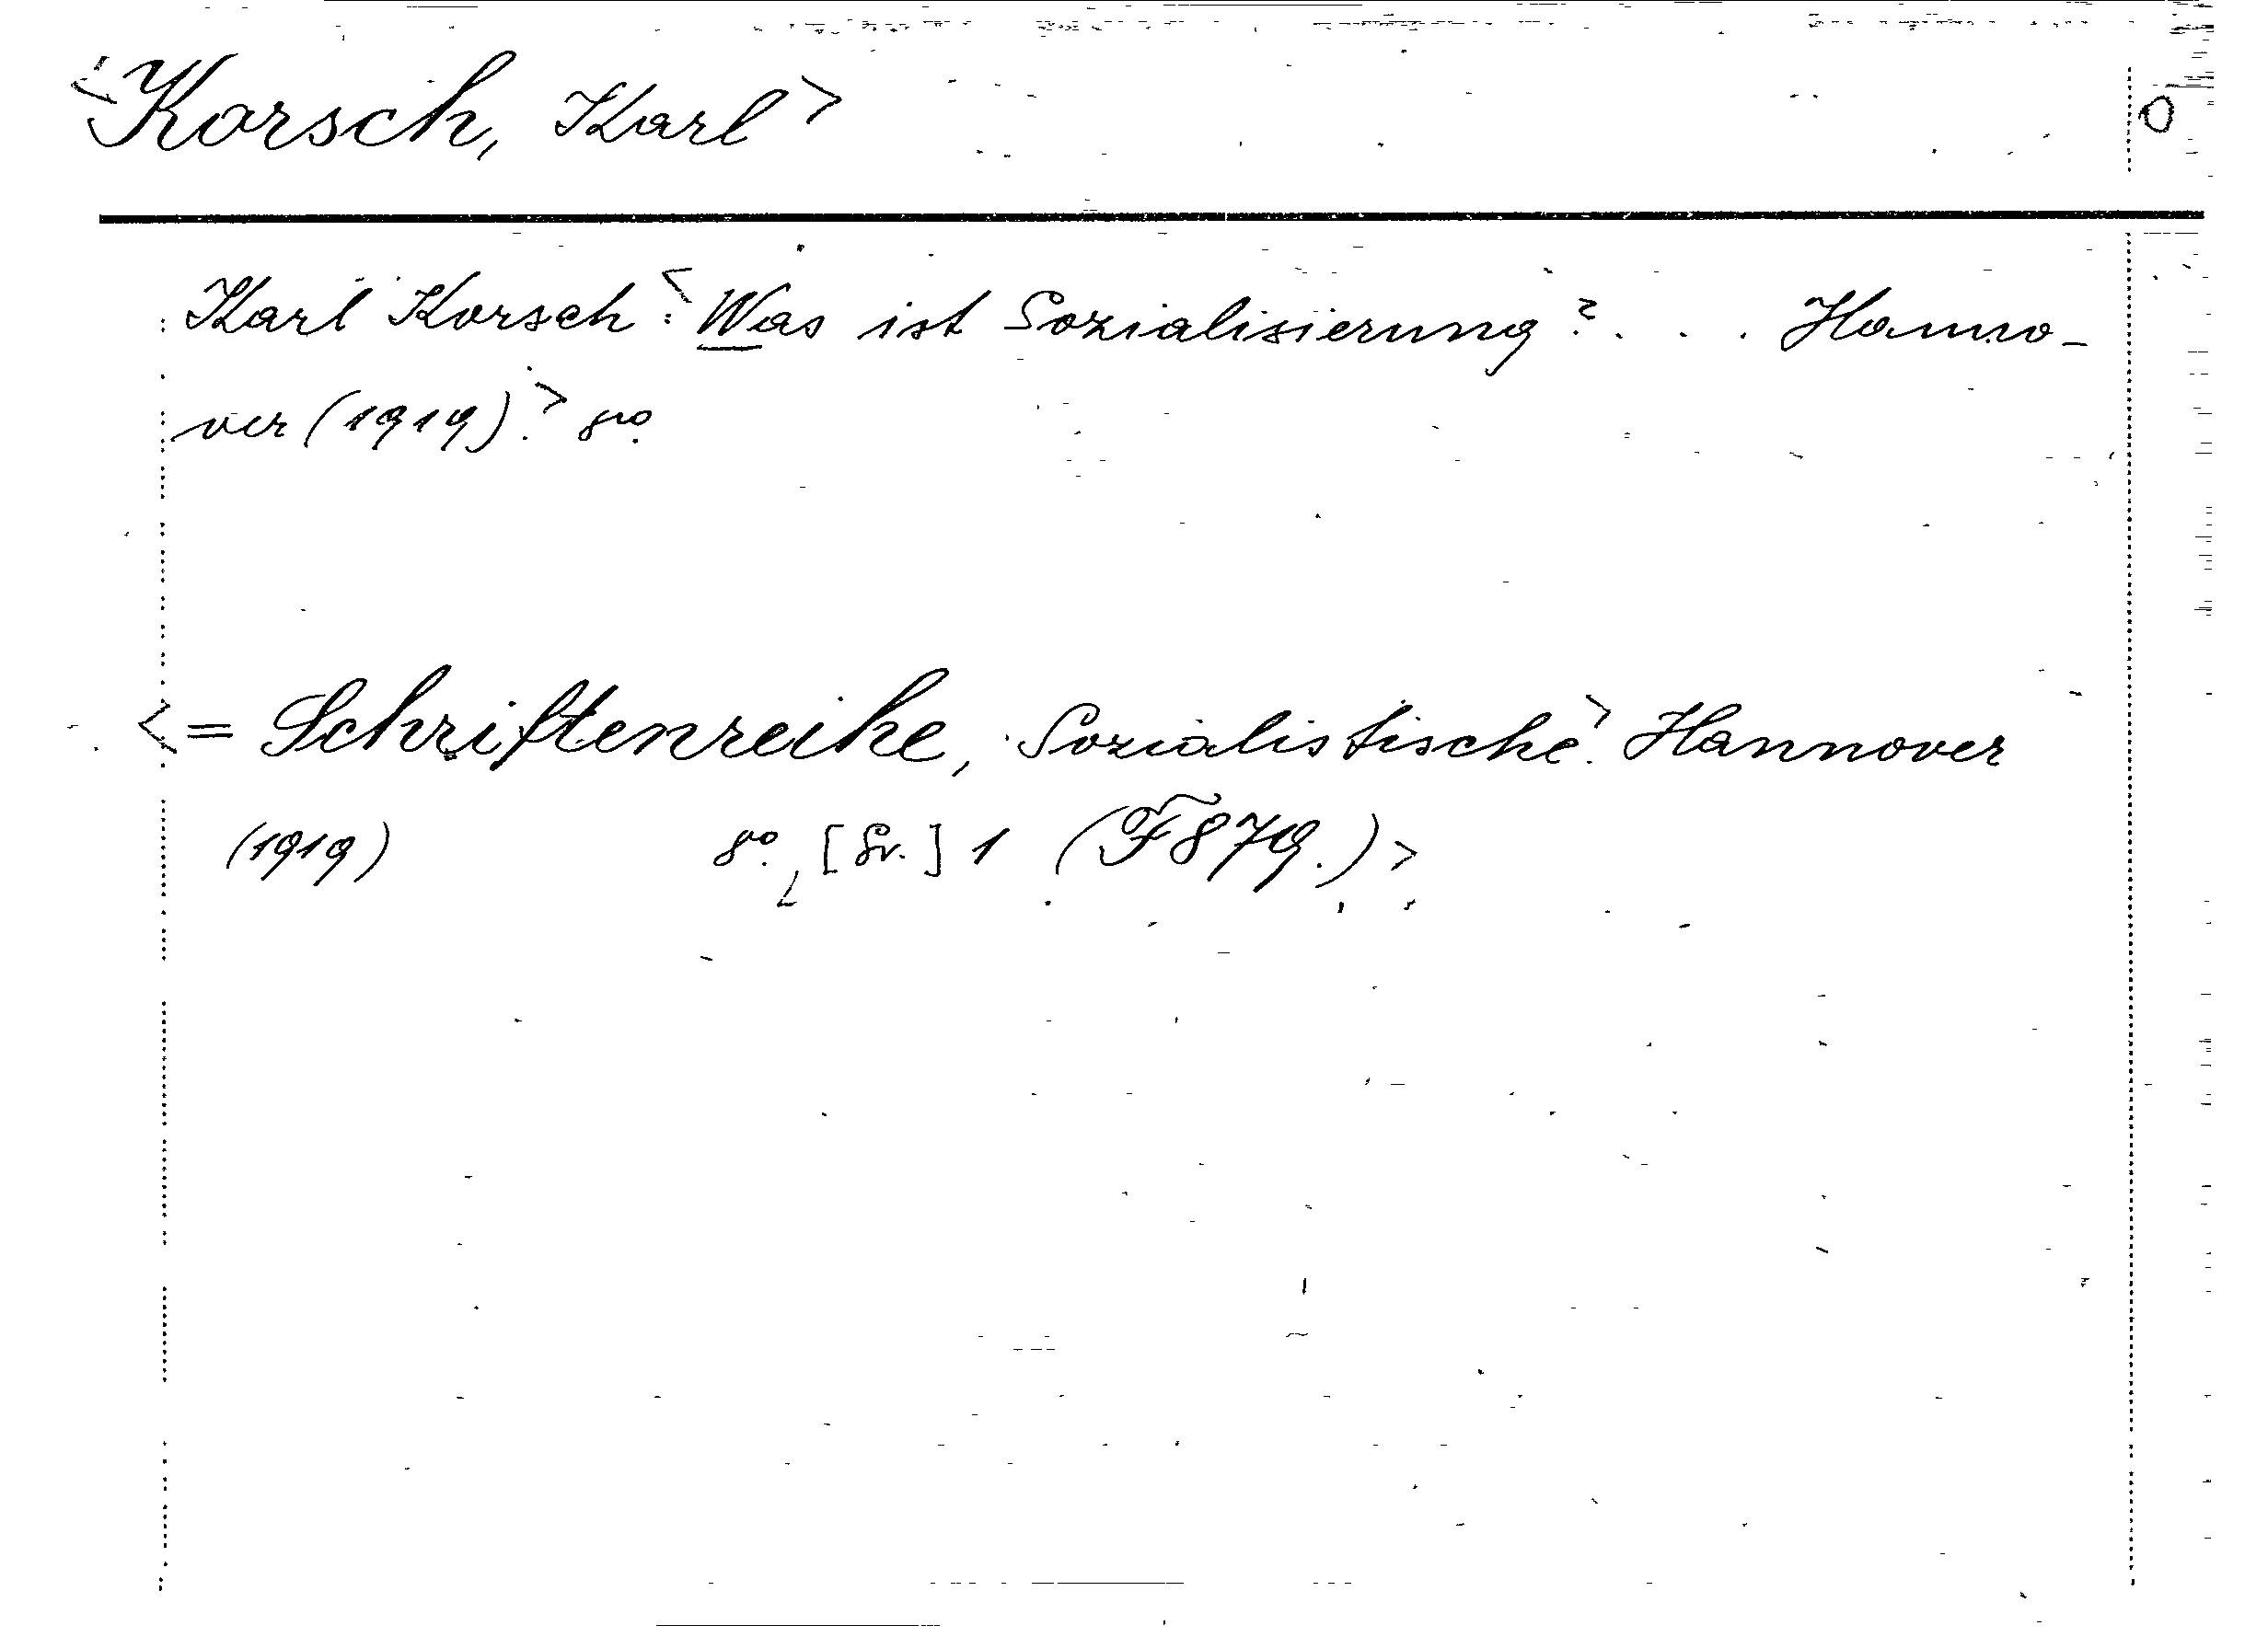 <Korsch, Karl> O
Karl Korsch: <Was ist Sozialisierung?... Hanno-
ver (1919).> 8°.
<= Schriftenreihe, Sozialistische.> Hannover
(1919) 8°. <[Sv.] 1 (F̃ 879.)>